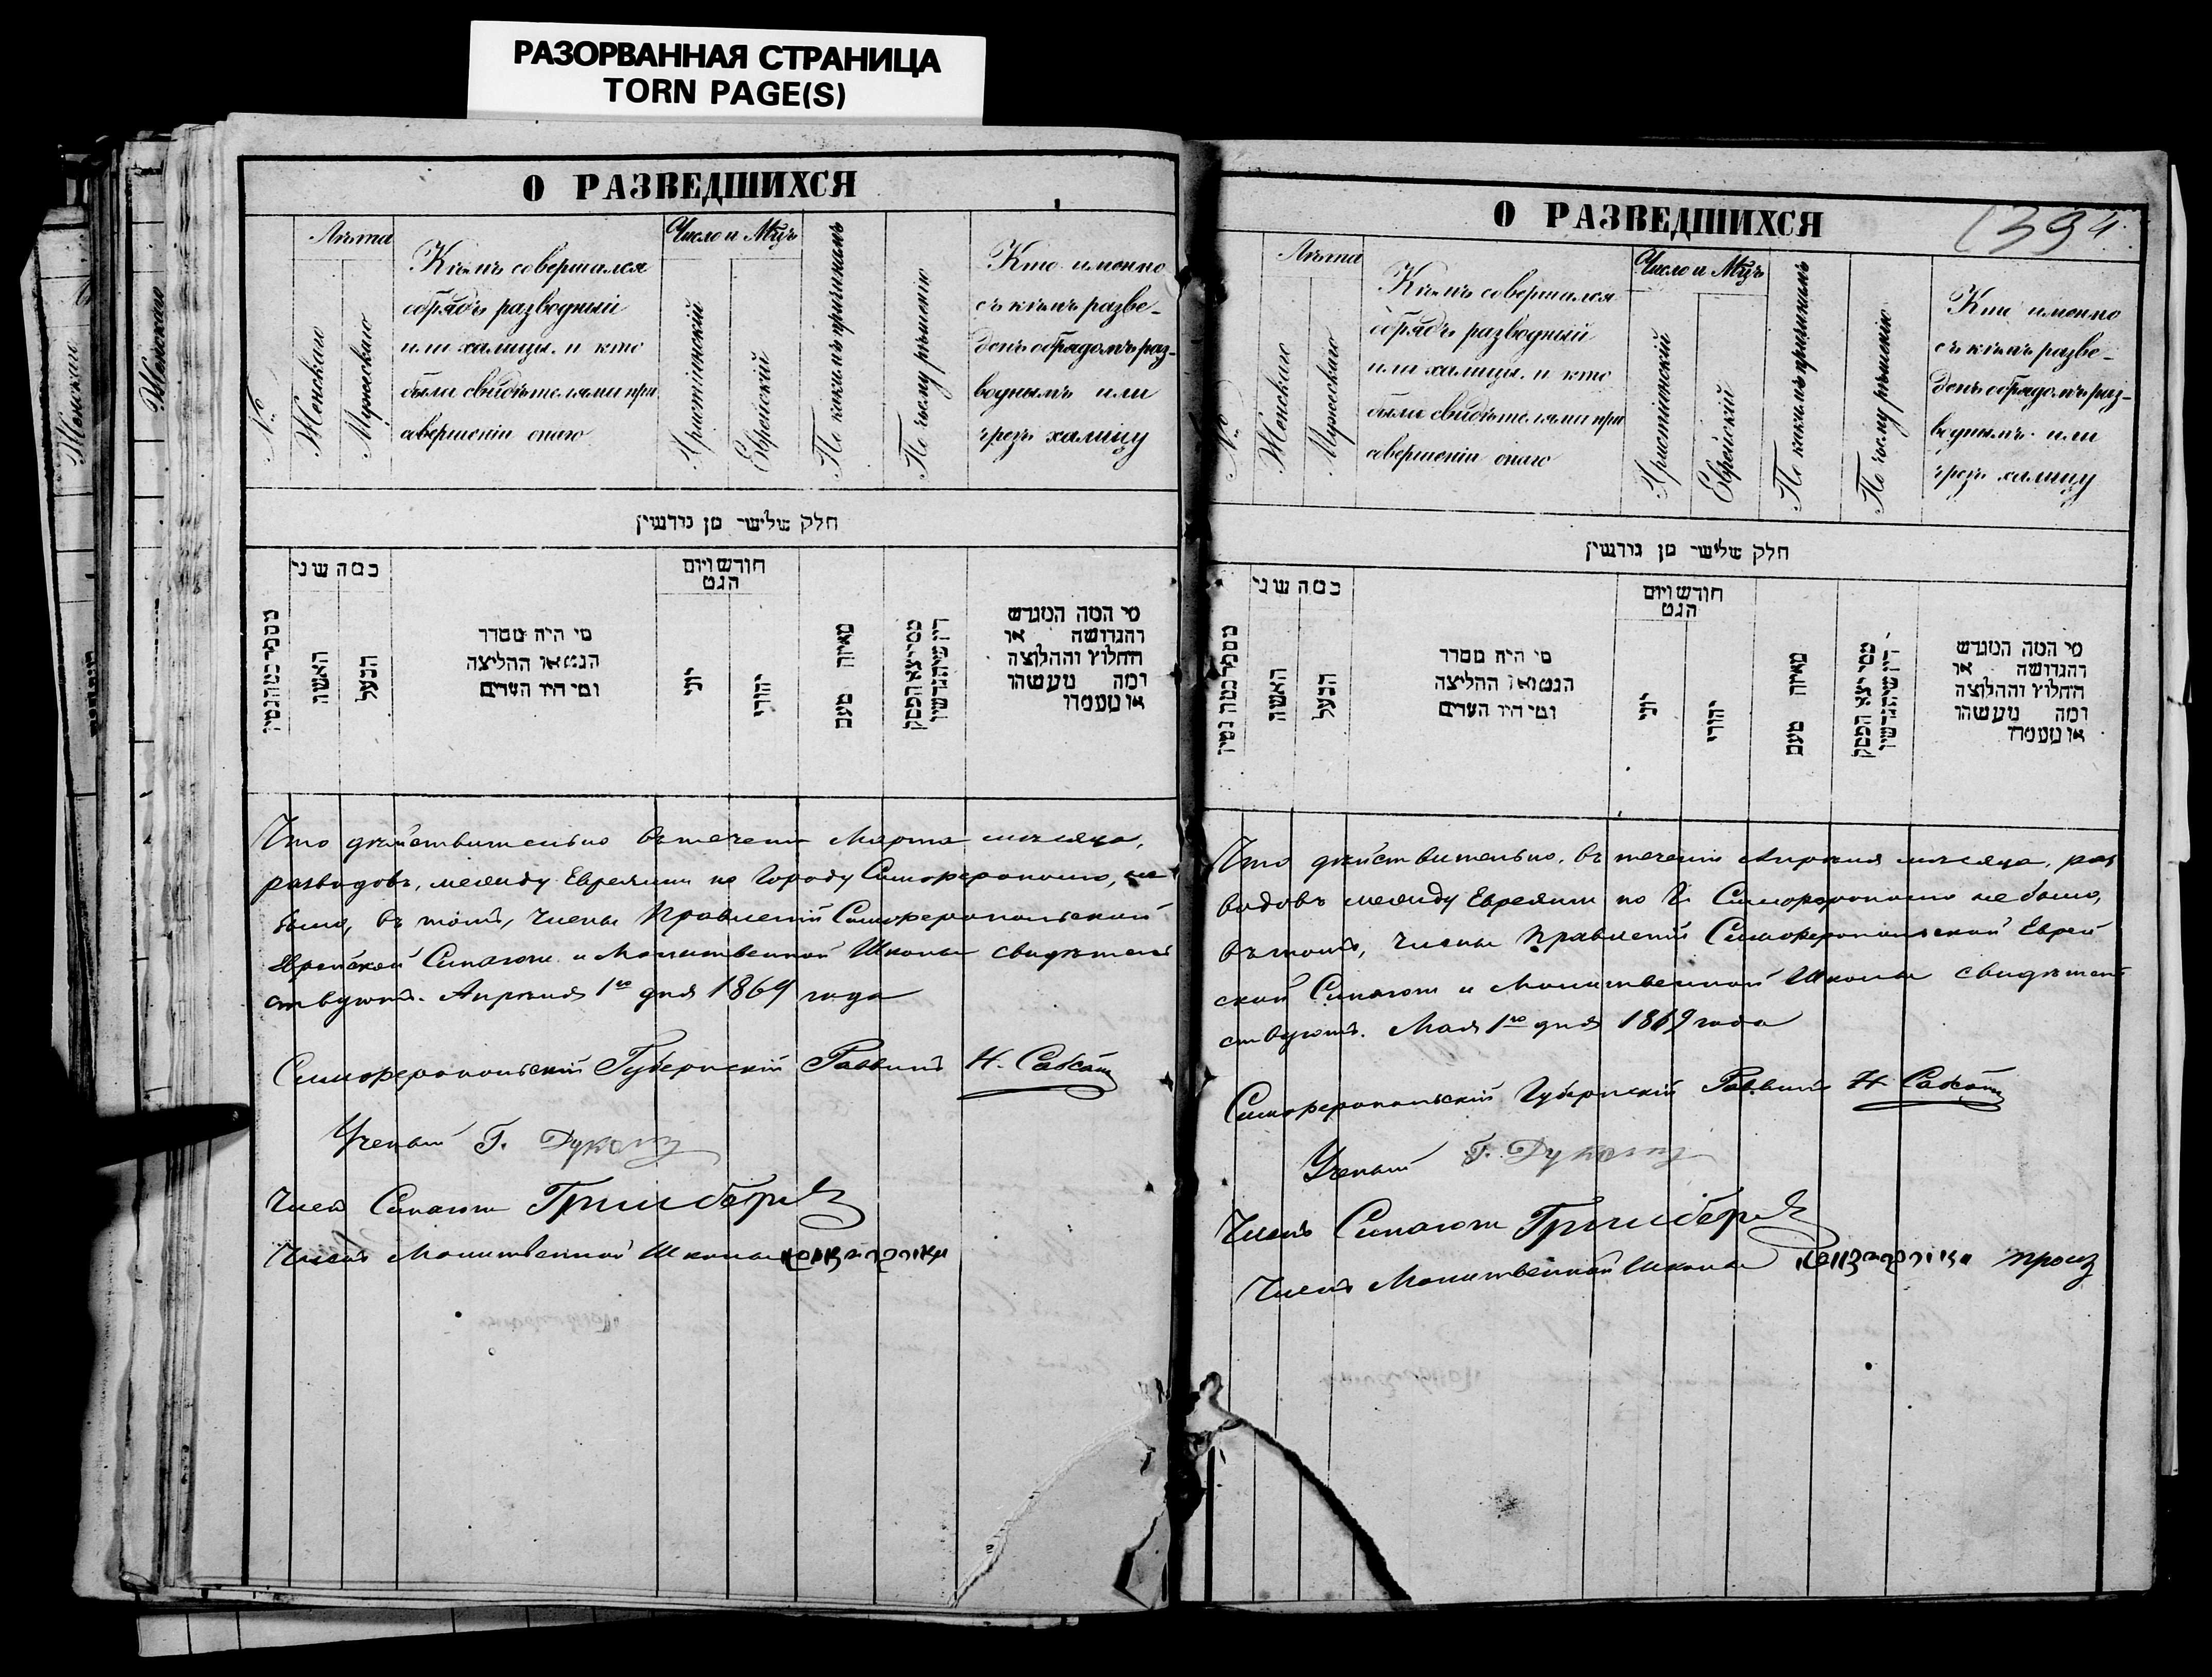 РАЗОРВАННАЯ СТРАНИЦА
TORN PAGE(S)
Женскаго
Женскаго
О РАЗВЕДШИХСЯ
№
Лѣта
Женскаго
Мужескаго
Кѣмъ совершался
обрядъ разводный
или халицы, и кто
были свидѣтелями при
совершеніи онаго
Число и Мцъ
Христіянскій
Еврейскій
По какимъ причинамъ
По чьему рѣшенію
Кто именно
съ кѣмъ разве-
денъ обрядомъ раз-
воднымъ или
чрезъ халицу
חלק שלישי מן גורשין
כמה שני
האשה
הבעל
מי היה מסדר
הגט או החליצה
ומי היו העדים
חודש ויום
הגט
יוני
יהודי
מאיזה טעם
מי המה המגרש
והגרושה או
החלוץ והחלוצה
ומה מעשהו
או מעמדו
Что дѣйствительно въ теченіи Марта мѣсяца,
разводовъ, между Евреями по Городу Симферополю, не
было, въ томъ, Члены Правленій Симферопольской
Еврейской Синагоги и Молитвенной Школы свидѣтель
ствуютъ. Апрѣля 1го дня 1869 года
Симферопольскій Губернскій Раввинъ Н. Сабсай
Ученый Г. Дукатъ
Членъ Синагоги Гринберъ
Членъ Молитвенной Школы
О РАЗВЕДШИХСЯ
394
№
Лѣта
Женскаго
Мужескаго
Кѣмъ совершался
обрядъ разводный
или халицы, и кто
были свидѣтелями при
совершеніи онаго
Число и Мцъ
Христіянскій
Еврейскій
По какимъ причинамъ
По чьему рѣшенію
Кто именно
съ кѣмъ разве-
денъ обрядомъ раз-
воднымъ или
чрезъ халицу
חלק שלישי מן גורשין
כמה שני
האשה
הבעל
מי היה מסדר
הגט או החליצה
ומי היו העדים
חודש ויום
הגט
יוני
יהודי
מאיזה טעם
מי המה המגרש
והגרושה או
החלוץ והחלוצה
ומה מעשהו
או מעמדו
Что дѣйствительно, въ теченіи Апрѣля мѣсяца, раз
водовъ между Евреями по Г. Симферополю не было,
въ томъ, Члены Правленій Симферопольской Еврей
ской Синагоги и Молитвенной Школы свидѣтель
ствуютъ. Мая 1го дня 1869 года
Симферопольскій Губернскій Раввинъ Н. Сабсай
Ученый Г. Дукатъ
Членъ Синагоги Гринберъ
Членъ Молитвенной Школы